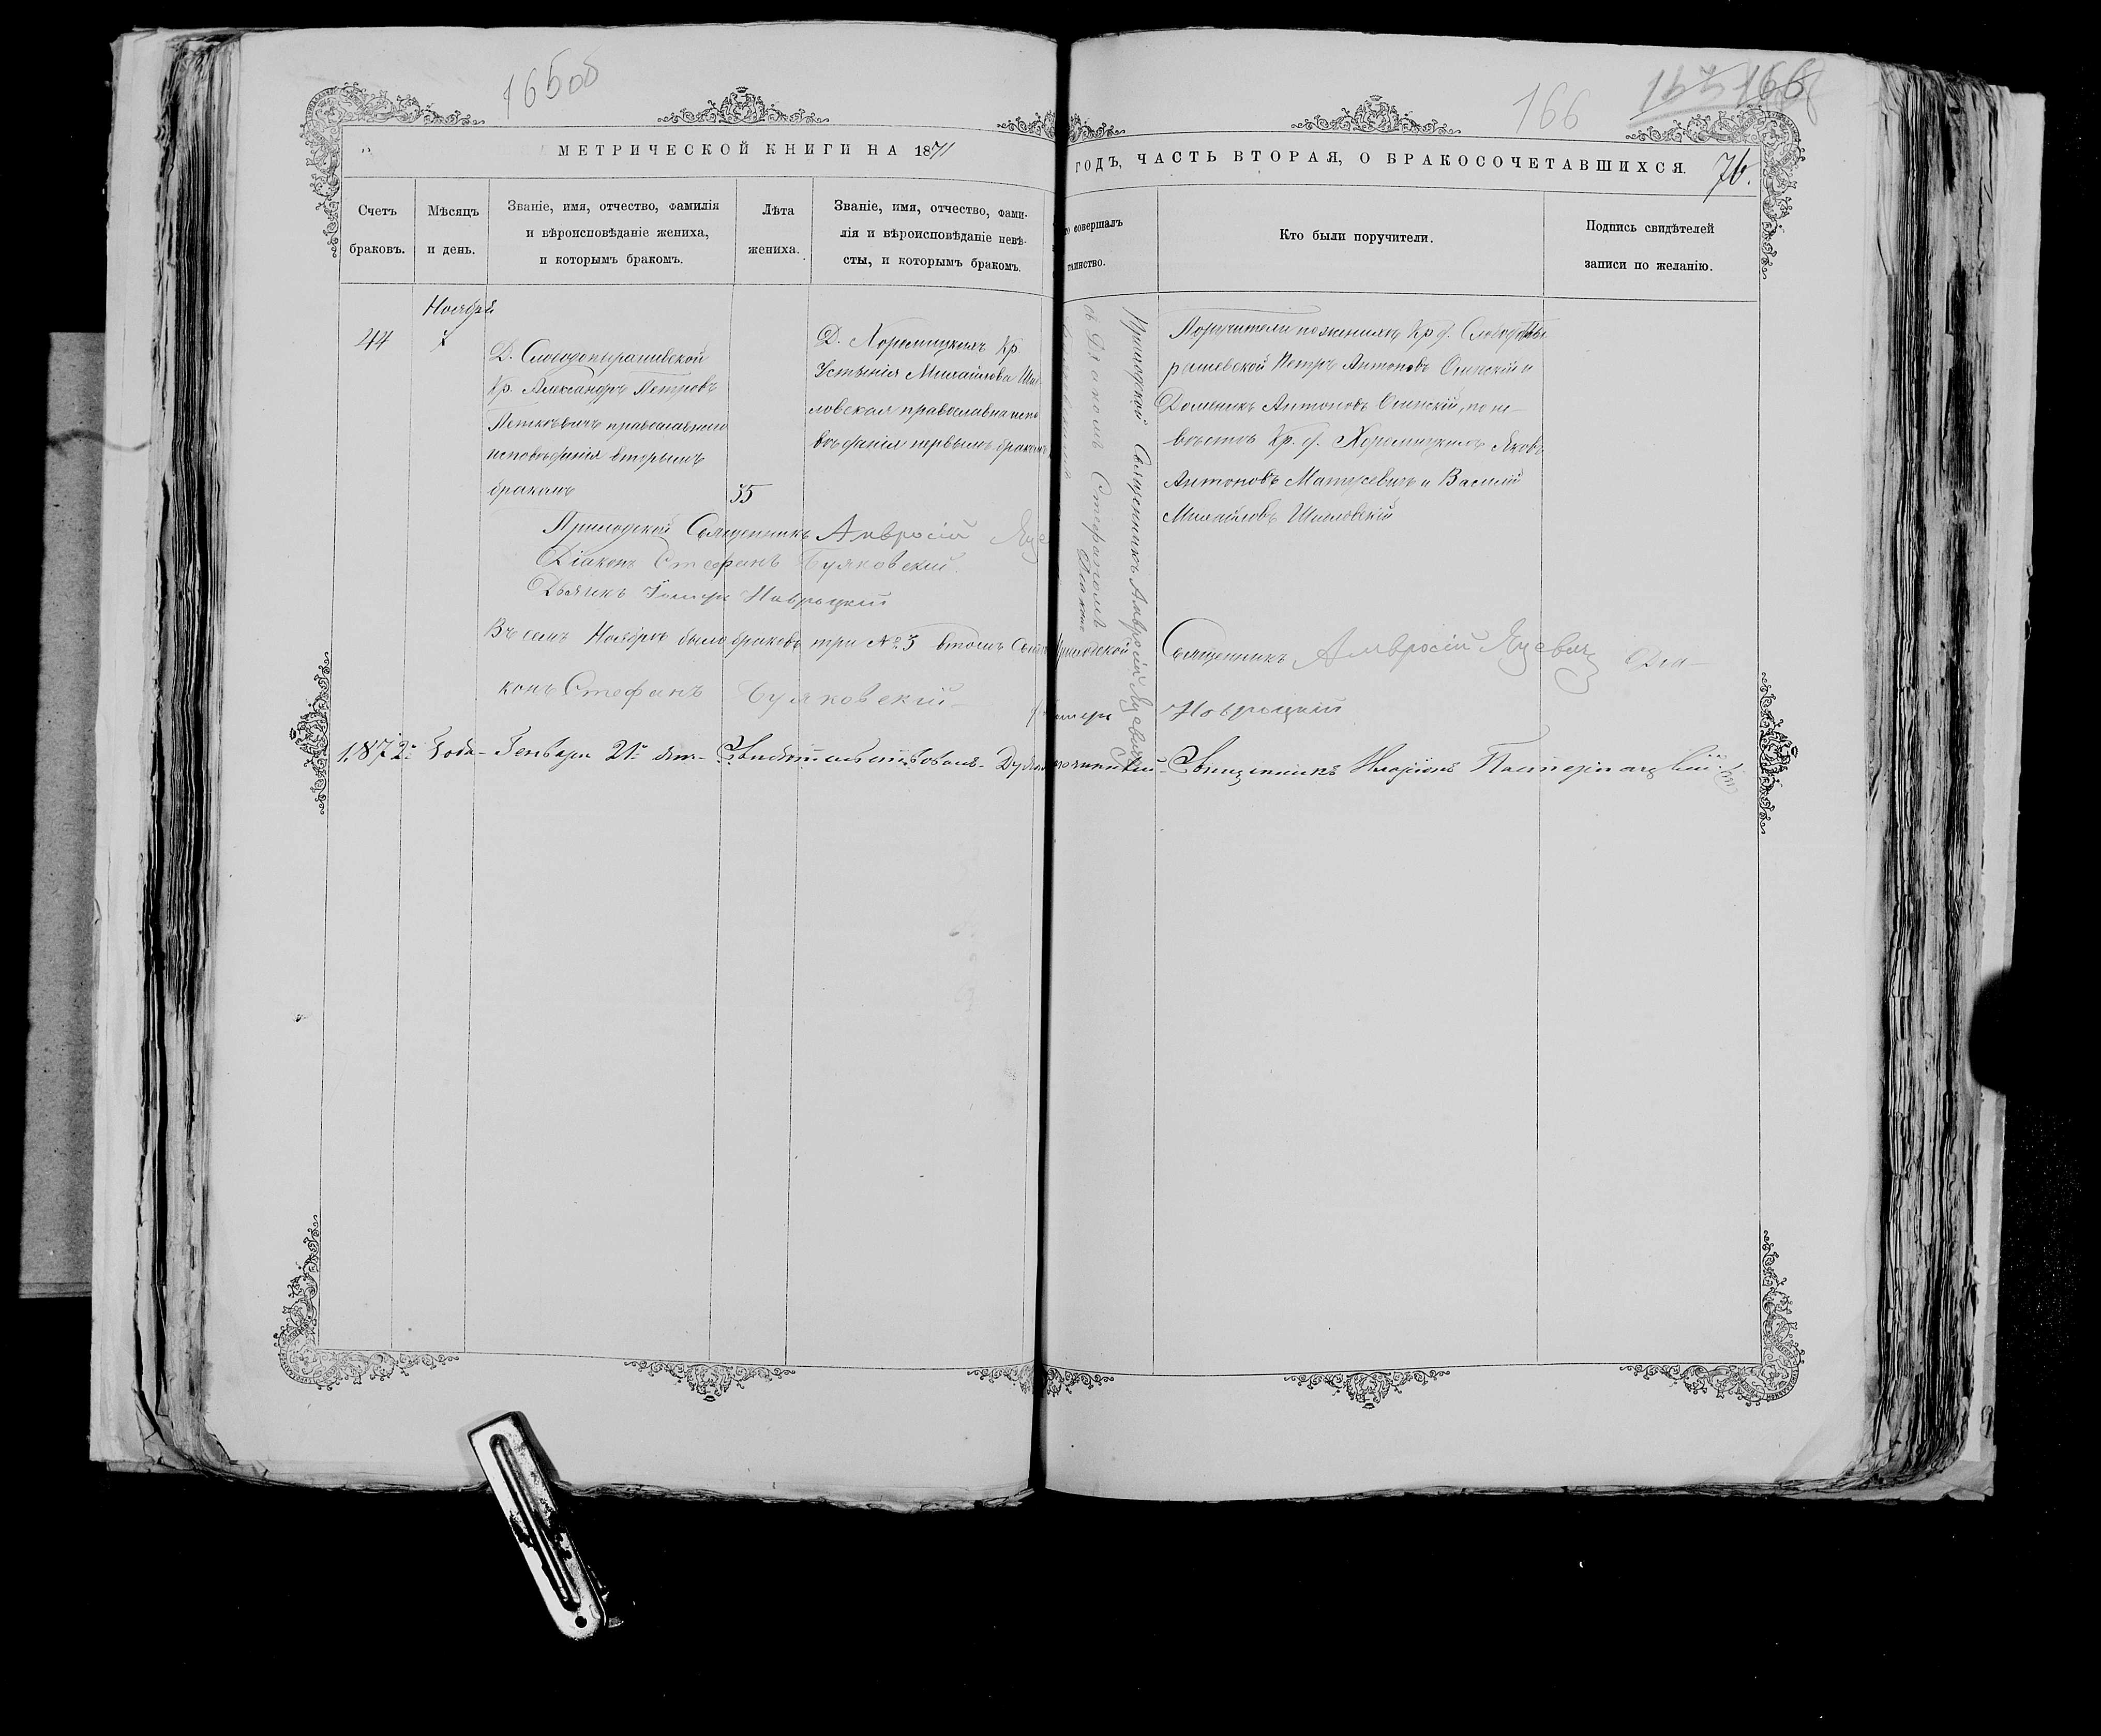 165об
166
166
76.
МЕТРИЧЕСКОЙ КНИГИ НА 1871
ГОДЪ, ЧАСТЬ ВТОРАЯ, О БРАКОСОЧЕТАВШИХСЯ.
Счетъ
браковъ.
Мѣсяцъ
и день.
Званіе, имя, отчество, фамилія
и вѣроисповѣданіе жениха,
и которымъ бракомъ.
Лѣта
жениха.
Званіе, имя, отчество, фами-
лія и вѣроисповѣданіе невѣ-
сты, и которымъ бракомъ.
совершалъ
таинство.
Кто были поручители.
Подпись свидѣтелей
записи по желанію.
Ноября
44
Д. Слободопырашевской
Кр. Александръ Петровъ
Петкѣвичъ православнаго
исповѣданія вторымъ
бракомъ
Д. Хоромицкихъ Кр.
Устинія Михайлова
ловская православна испо
вѣданія первымъ бракомъ
Приходской Священникъ Амвросій Яцевичъ
съ Діакономъ Стефаномъ
Поручители по женихѣ Кр. д. Слободопы
рашевской Петръ Антоновъ Осинскій и
Доминикъ Антоновъ Осинскій, по не-
вѣстѣ Кр. д. Хоромицкихъ Яковъ
Антоновъ Матусевичъ и Василій
Михайловъ Шиловскій
Приходской Священникъ Амвросій
Діаконъ Стефанъ Буяковскій.
Дьячекъ Навроцкій
Въ семъ Ноябрѣ было браковъ три № 3 втомъ Приходской Священникъ Амвросій Яцевичъ Діа-
конъ Стефанъ Буяковскій
Навроцкій
1872 Года Генваря 21 дня Свидѣтельствовалъ Священникъ